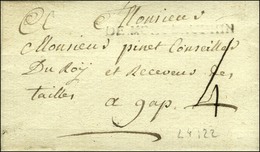 Monsieur
Monsieur pinet Conseiller
Du Roy et Receveur des
tailles
a gap. 4